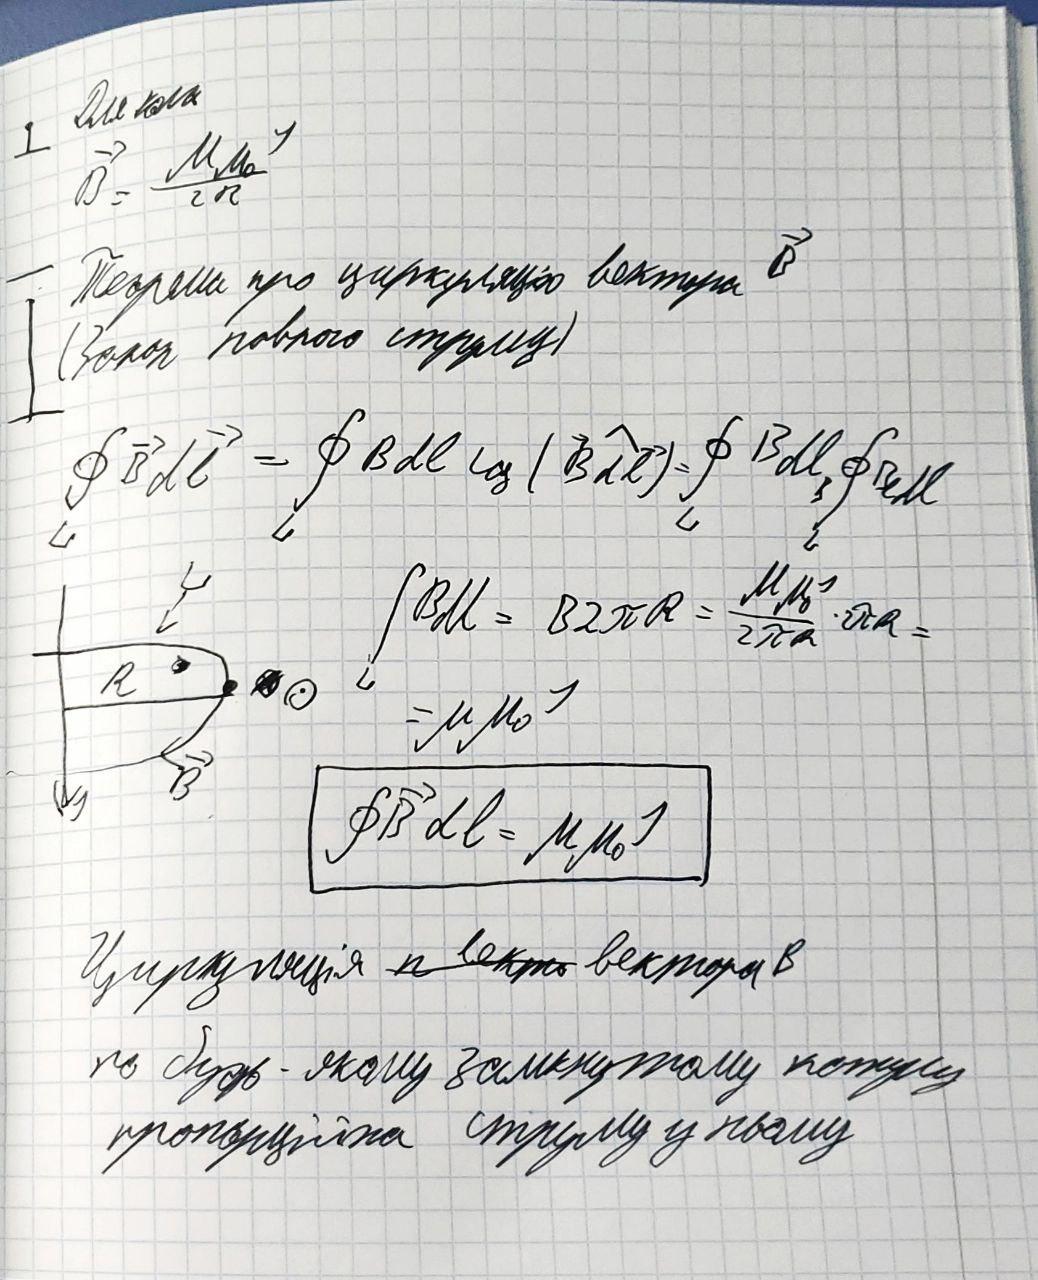 Для кола
B⃗ = μμ₀J / 2R
Теорема про циркуляцію вектора B⃗
(Закон повного струму)
∮_L B⃗dl⃗ = ∮_L Bdl cos(B⃗dl⃗) = ∮_L Bdl_B ∮_L B_l dl
L
∫_L Bdl = B2πR = μμ₀J / 2πR · 2πR =
R
= μμ₀J
B⃗
J
∮B⃗dl = μμ₀J
Циркуляція вектора B
по будь-якому замкнутому контуру
пропорційна струму у ньому